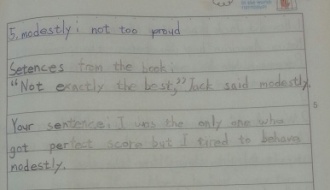 5. modestly: not too proud
Setences from the book:
"Not exactly the best," Jack said modestly.
Your sentence: I was the only one who
got perfect score but I tired to behave
modestly.